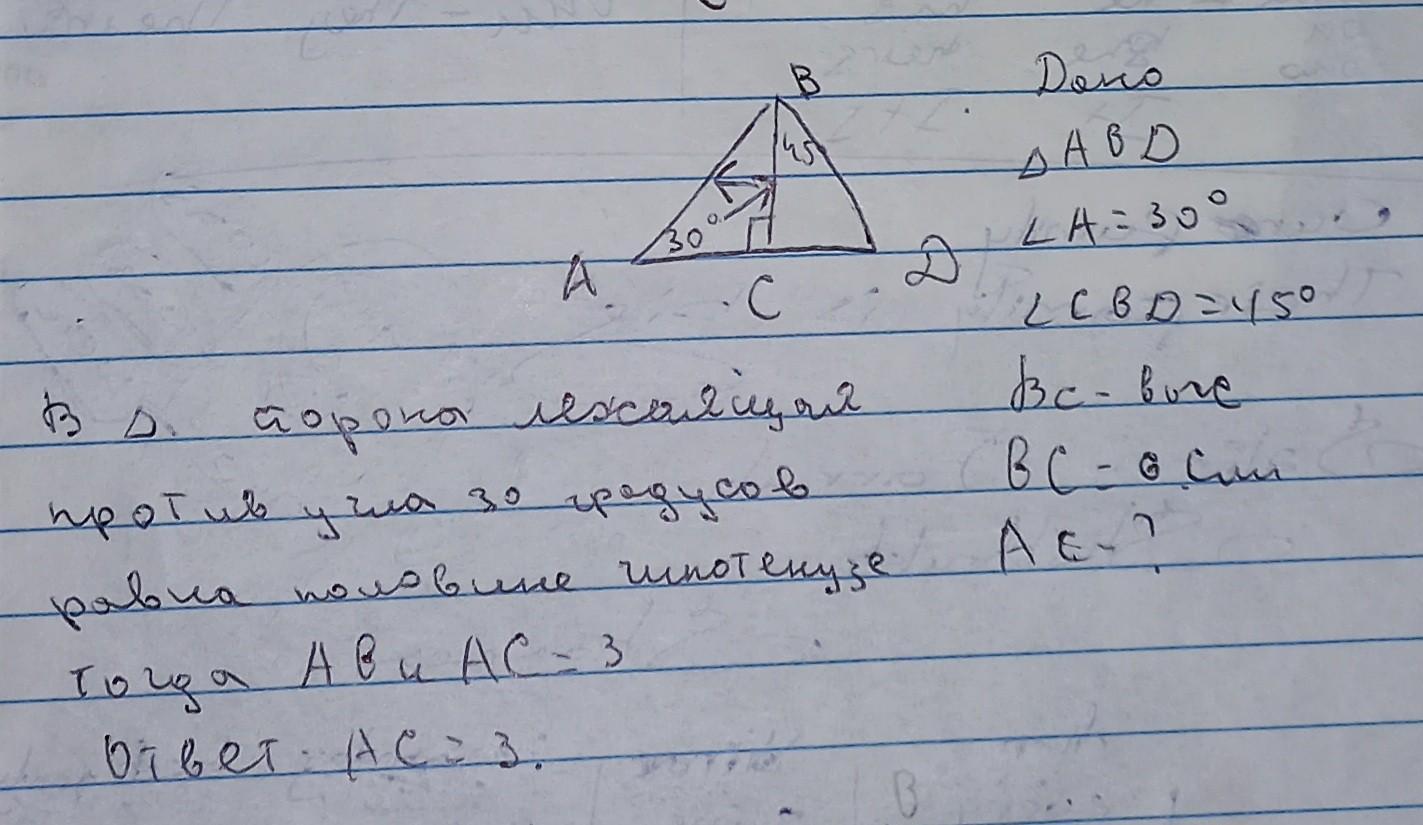 B
45
30°
A
C
D
Дано
△ABD
∠A=30°
∠CBD=45°
BC - выс
BC - 6 см
AC - ?
В △. сторона лежащая
против угла 30 градусов
равна половине гипотенузе
тогда AB и AC = 3
Ответ: AC = 3.